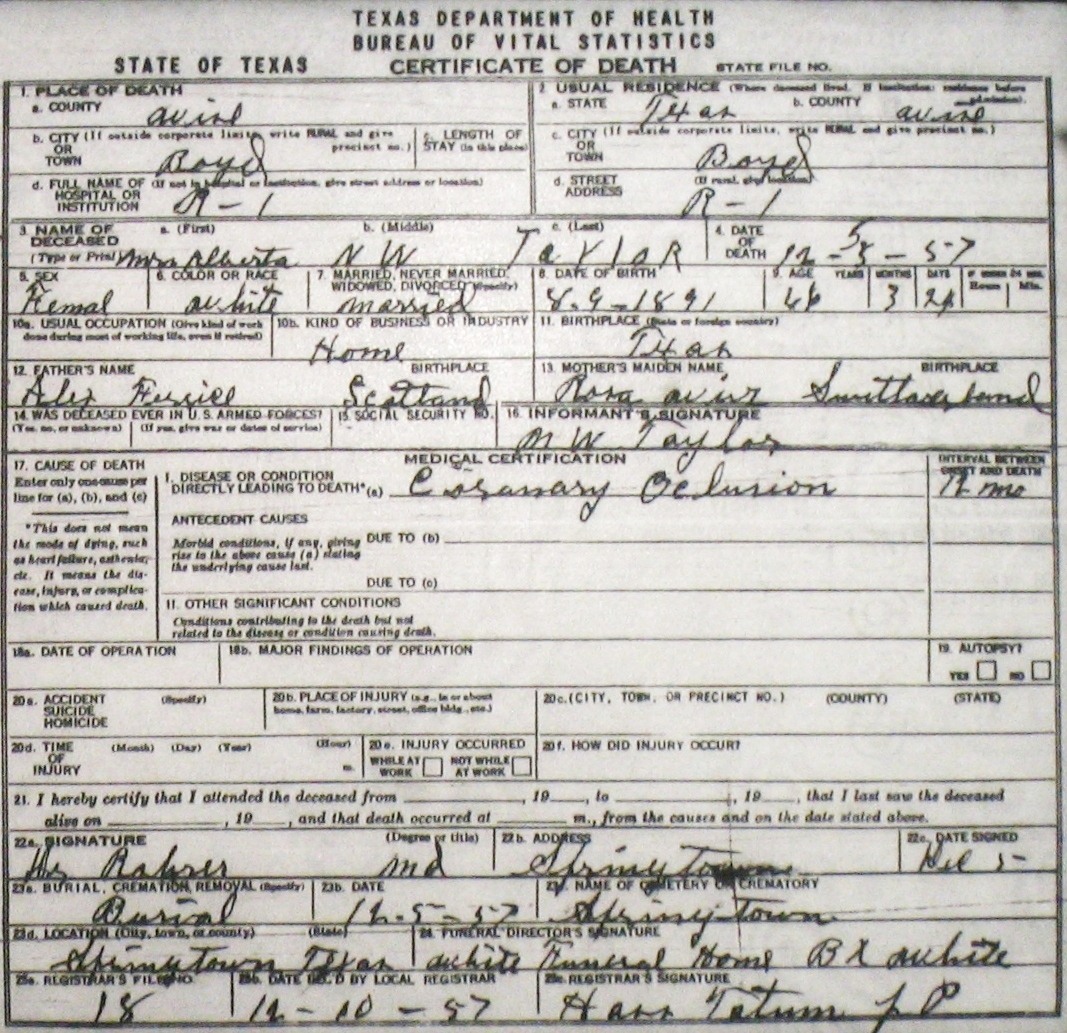 TEXAS DEPARTMENT OF HEALTH
BUREAU OF VITAL STATISTICS
STATE OF TEXAS CERTIFICATE OF DEATH STATE FILE NO.
1. PLACE OF DEATH
a. COUNTY
2. USUAL RESIDENCE (Where deceased lived. If institution: residence before admission).
a. STATE Texas b. COUNTY
b. CITY (If outside corporate limits, write RURAL and give precinct no.)
OR
TOWN Boyd
c. LENGTH OF
STAY (in this place)
c. CITY (If outside corporate limits, write RURAL and give precinct no.)
OR
TOWN Boyd
d. FULL NAME OF (If not in hospital or institution, give street address or location)
HOSPITAL OR
INSTITUTION R-1
d. STREET (If rural, give location)
ADDRESS R-1
3. NAME OF DECEASED a. (First) b. (Middle) c. (Last)
(Type or Print) Mrs Alberta N W TaylOR
4. DATE
OF
DEATH 12-5-57
5. SEX
Femal
6. COLOR OR RACE
white
7. MARRIED, NEVER MARRIED,
WIDOWED, DIVORCED (Specify)
married
8. DATE OF BIRTH
8-9-1891
9. AGE YEARS MONTHS DAYS IF UNDER 24 HRS.
Hours Min.
66 3 26
10a. USUAL OCCUPATION (Give kind of work
done during most of working life, even if retired)
10b. KIND OF BUSINESS OR INDUSTRY
Home
11. BIRTHPLACE (State or foreign country)
Texas
12. FATHER'S NAME BIRTHPLACE
Alex Scotland
13. MOTHER'S MAIDEN NAME BIRTHPLACE
Rosa
14. WAS DECEASED EVER IN U.S. ARMED FORCES?
(Yes, no, or unknown) (If yes, give war or dates of service)
15. SOCIAL SECURITY NO.
16. INFORMANT'S SIGNATURE
N W Taylor
MEDICAL CERTIFICATION
17. CAUSE OF DEATH
Enter only one cause per
line for (a), (b), and (c)
*This does not mean
the mode of dying, such
as heart failure, asthenia,
etc. It means the dis-
ease, injury, or complica-
tion which caused death.
I. DISEASE OR CONDITION
DIRECTLY LEADING TO DEATH* (a) Coranary Oclusion
INTERVAL BETWEEN
ONSET AND DEATH
12 mo
ANTECEDENT CAUSES
Morbid conditions, if any, giving
rise to the above cause (a) stating
the underlying cause last.
DUE TO (b)
DUE TO (c)
11. OTHER SIGNIFICANT CONDITIONS
Conditions contributing to the death but not
related to the disease or condition causing death.
18a. DATE OF OPERATION
18b. MAJOR FINDINGS OF OPERATION
19. AUTOPSY?
YES NO
20a. ACCIDENT (Specify)
SUICIDE
HOMICIDE
20b. PLACE OF INJURY (e.g., in or about
home, farm, factory, street, office bldg., etc.)
20c. (CITY, TOWN, OR PRECINCT NO.) (COUNTY) (STATE)
20d. TIME (Month) (Day) (Year) (Hour)
OF
INJURY m.
20e. INJURY OCCURRED
WHILE AT WORK NOT WHILE AT WORK
20f. HOW DID INJURY OCCUR?
21. I hereby certify that I attended the deceased from , 19 , to , 19 , that I last saw the deceased
alive on , 19 , and that death occurred at m., from the causes and on the date stated above.
22a. SIGNATURE (Degree or title)
Md
22b. ADDRESS
Springtown
22c. DATE SIGNED
Dec 5
23a. BURIAL, CREMATION, REMOVAL (Specify)
Burial
23b. DATE
12-5-57
23c. NAME OF CEMETERY OR CREMATORY
Springtown
23d. LOCATION (City, town, or county) (State)
Springtown Texas
24. FUNERAL DIRECTOR'S SIGNATURE
white Funeral Home white
25a. REGISTRAR'S FILE NO.
18
25b. DATE REC'D BY LOCAL REGISTRAR
12-10-57
25c. REGISTRAR'S SIGNATURE
Tatum J P